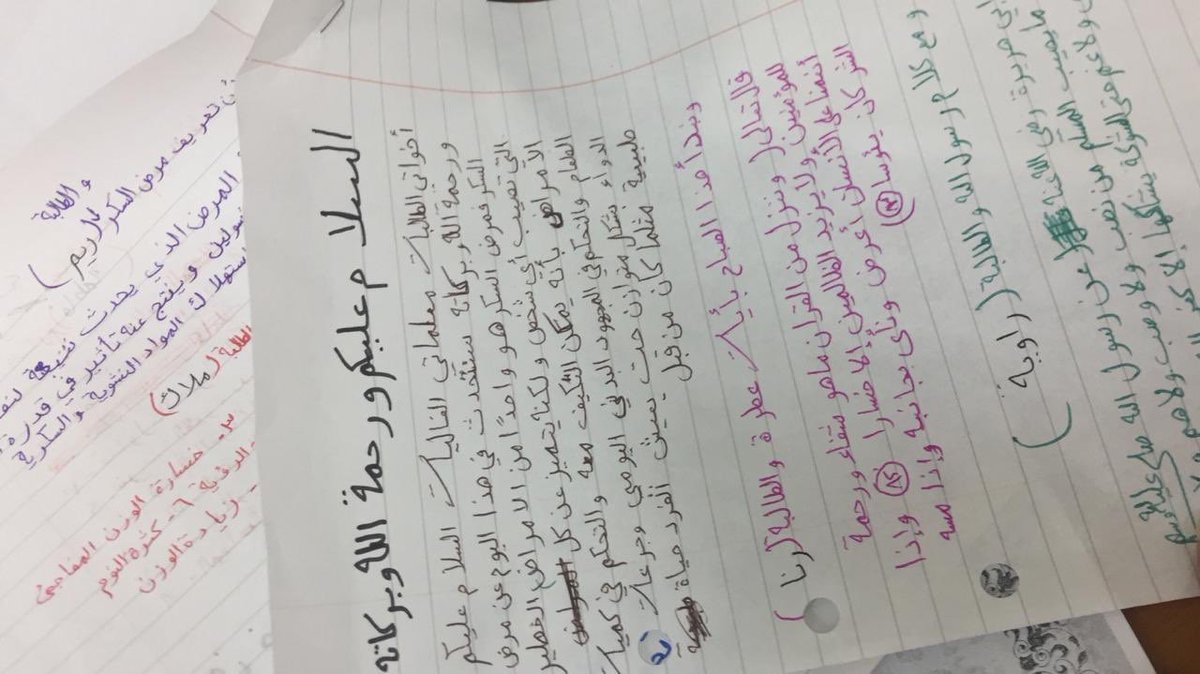 السلام عليكم ورحمة الله وبركاته
أخواتي الطالبات معلماتي الغاليات السلام عليكم
ورحمة الله وبركاته سنتحدث في هذا اليوم عن مرض
السكر فمرض السكر هو واحداً من الأمراض الخطيرة
التي تصيب أي شخص ولكنه يتميز عن كل
الأمراض بأنه يمكن التكيف معه والتحكم في كميات
الطعام والتحكم في المجهود البدني اليومي وجرعات
الدواء بشكل متوازن حتى يعيش الفرد حياة
طبيعية مثلما كان من قبل
ونبدأ هذا الصباح بأيات عطرة والطالبة (رنا)
قال تعالى (وننزل من القرآن ماهو شفاء ورحمة
للمؤمنين ولا يزيد الظالمين إلا خسارا (٨٢) وإذا
أنعمنا على الأنسان أعرض ونأى بجانبه وإذا مسه
الشر كان يئوسا (٨٣)
ومع كلام رسول الله والطالبة (راوية)
أبي هريرة رضي الله عنه عن رسول الله صلى عليه وسلم
ما يصيب المسلم من نصب ولا وصب ولا هم
ولا غم حتى الشوكة يشاكها إلا كفر
والطالبة
(ريم)
تعريف مرض السكر
المرض الذي يحدث نتيجة
وينتج عنه تأثير في قدرة
استهلاك المواد النشوية والسكرية
الطالبة (ملاك)
٣- خسارة الوزن المفاجئ
٦- كثرة النوم
زيادة الوزن